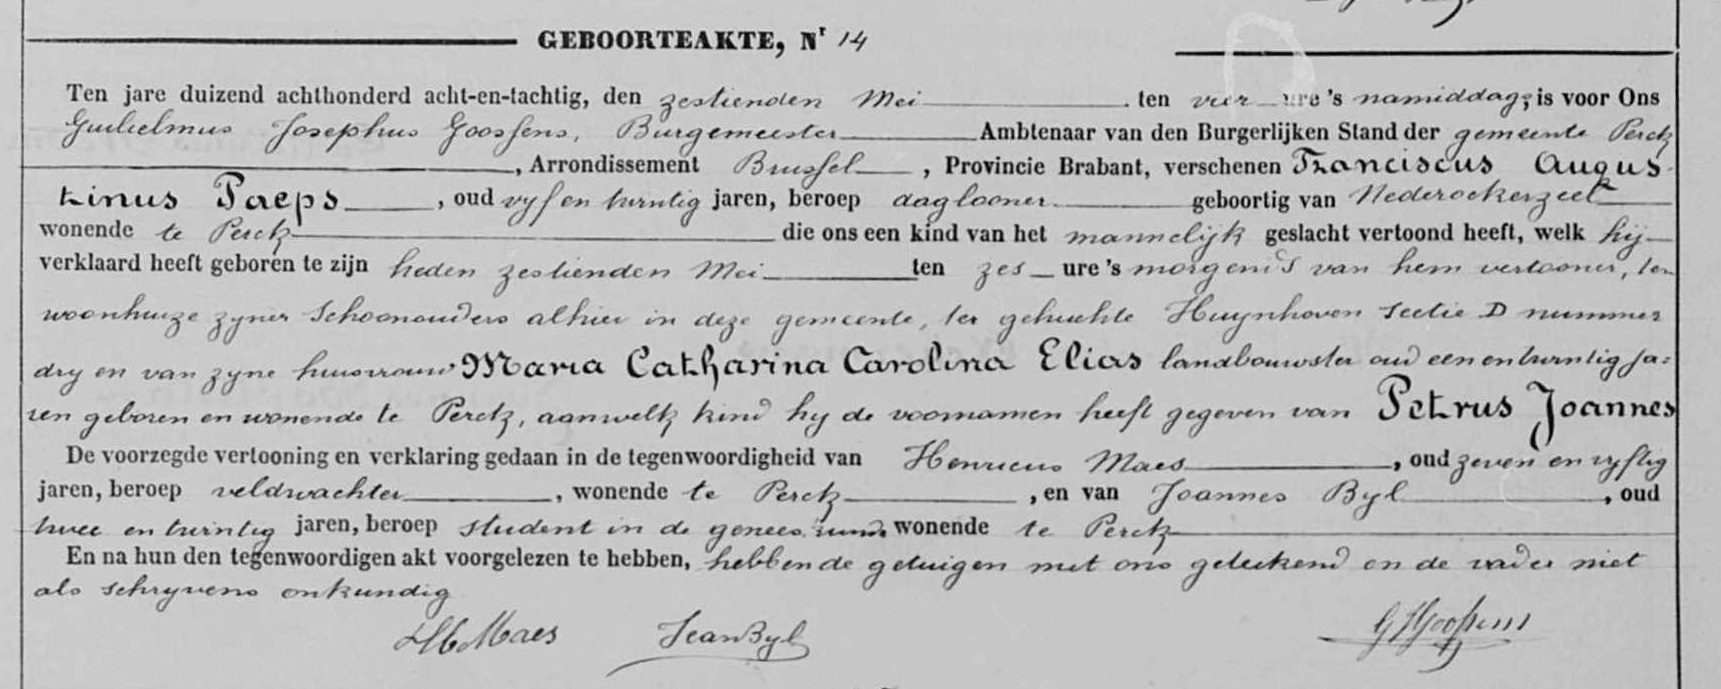 GEBOORTEAKTE, Nr 14
Ten jare duizend achthonderd acht-en-tachtig, den zestienden Mei ten vier ure 's namiddags, is voor Ons
Guilielmus Josephus Goossens, Burgemeester Ambtenaar van den Burgerlijken Stand der gemeente Perck
, Arrondissement Brussel , Provincie Brabant, verschenen Franciscus Augus-
tinus Paeps , oud vyf en twintig jaren, beroep daglooner geboortig van Nederockerzeel
wonende te Perck die ons een kind van het mannelijk geslacht vertoond heeft, welk hij
verklaard heeft geboren te zijn heden zestienden Mei ten zes ure 's morgends van hem vertooner, ten
woonhuize zyner schoonouders alhier in deze gemeente, ter gehuchte Huynhoven sectie D nummer
dry en van zyne huisvrouw Maria Catharina Carolina Elias landbouwster oud een en twintig ja=
ren geboren en wonende te Perck, aan welk kind hy de voornamen heeft gegeven van Petrus Joannes
De voorzegde vertooning en verklaring gedaan in de tegenwoordigheid van Henricus Maes , oud zeven en vyftig
jaren, beroep veldwachter , wonende te Perck , en van Joannes Byl , oud
twee en twintig jaren, beroep student in de genees wonende te Perck
En na hun den tegenwoordigen akt voorgelezen te hebben, hebben de getuigen met ons geteekend en de vader niet
als schryvens onkundig
H Maes Jean Byl G J Goossens